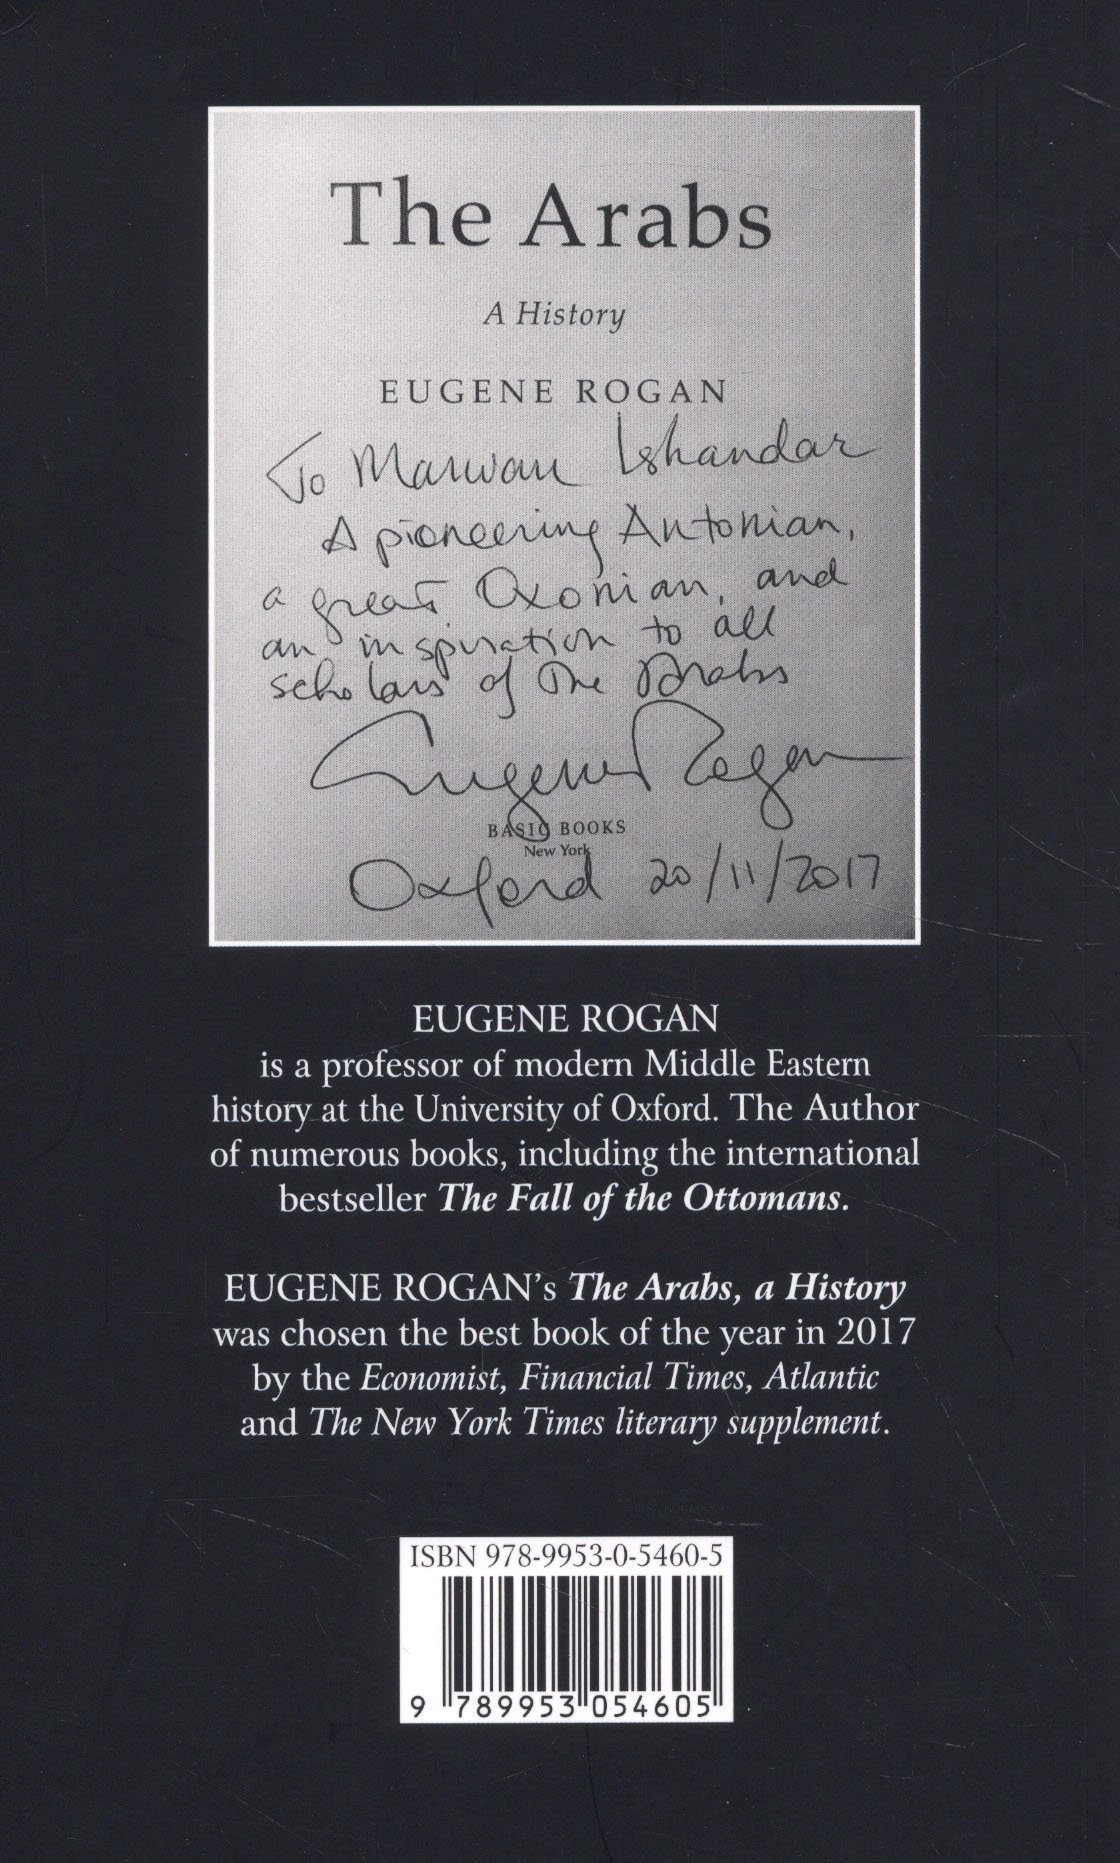 The Arabs
A History
EUGENE ROGAN
To Marwan Iskandar
A pioneering Antonian,
a great Oxonian, and
an inspiration to all
scholars of the Arabs
Eugene Rogan
BASIC BOOKS
New York
Oxford 20/11/2017
EUGENE ROGAN
is a professor of modern Middle Eastern
history at the University of Oxford. The Author
of numerous books, including the international
bestseller The Fall of the Ottomans.
EUGENE ROGAN's The Arabs, a History
was chosen the best book of the year in 2017
by the Economist, Financial Times, Atlantic
and The New York Times literary supplement.
ISBN 978-9953-0-5460-5
9 789953 054605